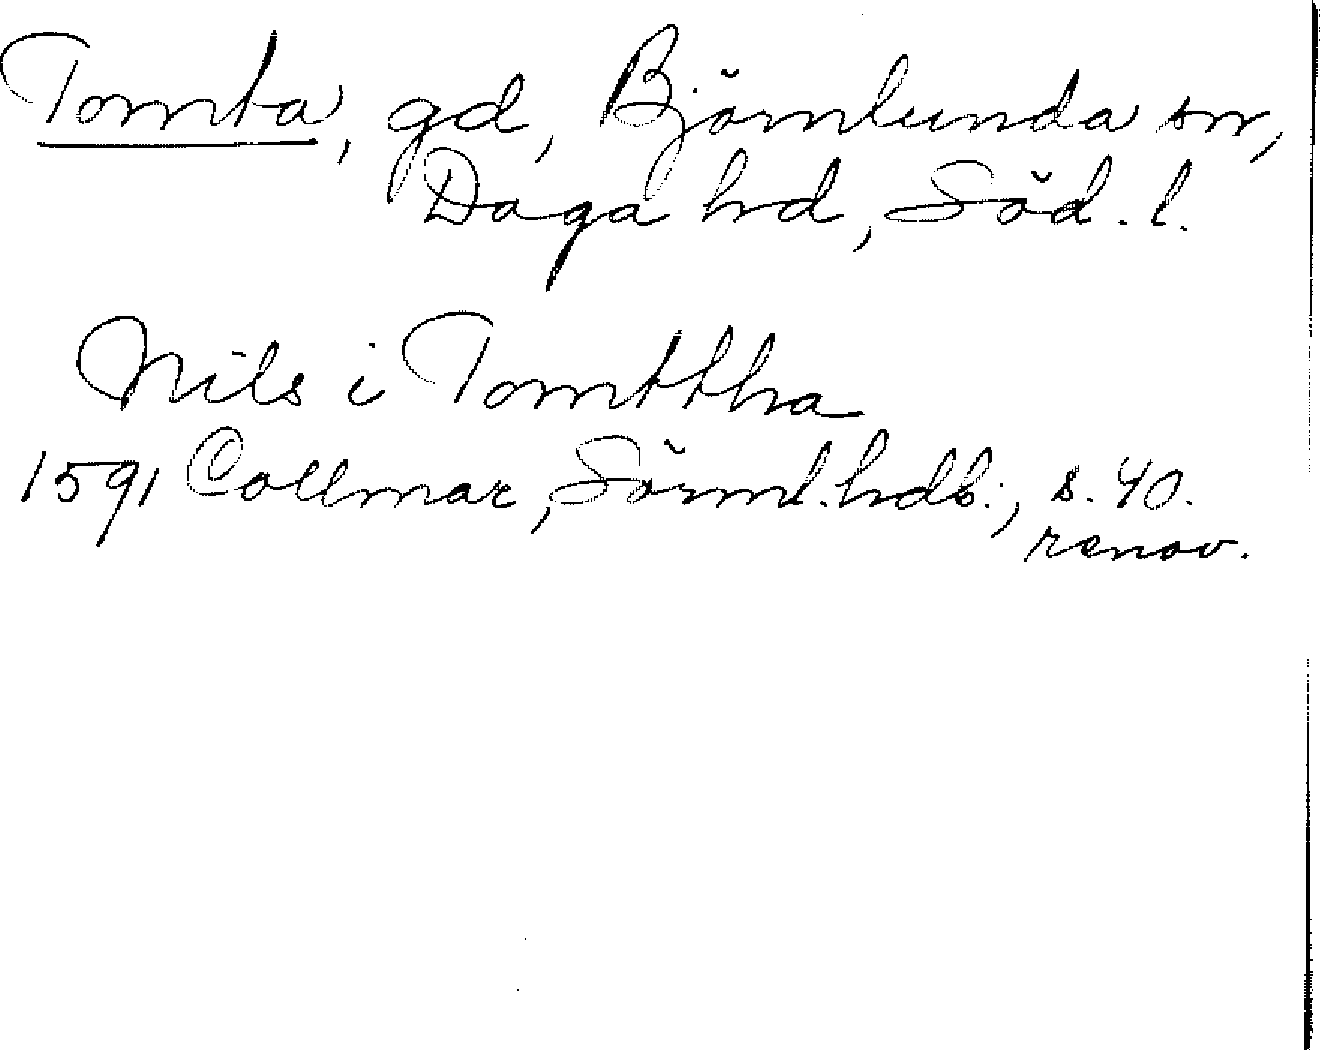 Tomta, gd, Björnlunda sn,
Daga hd, Söd. l.
Nils i Tomttha
1591 Collmar, Sörml. hdb., s. 40.
renov.